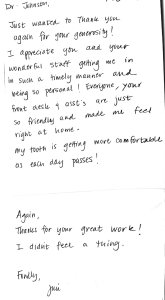 Dr. Johnson,
Just wanted to Thank you
again for your generosity!
I appreciate you and your
wonderful staff getting me in
in such a timely manner and
being so personal! Everyone, your
front desk & asst's are just
so friendly and made me feel
right at home.
my tooth is getting more comfortable
as each day passes!
Again,
Thanks for your great work!
I didn't feel a thing.
Fondly,